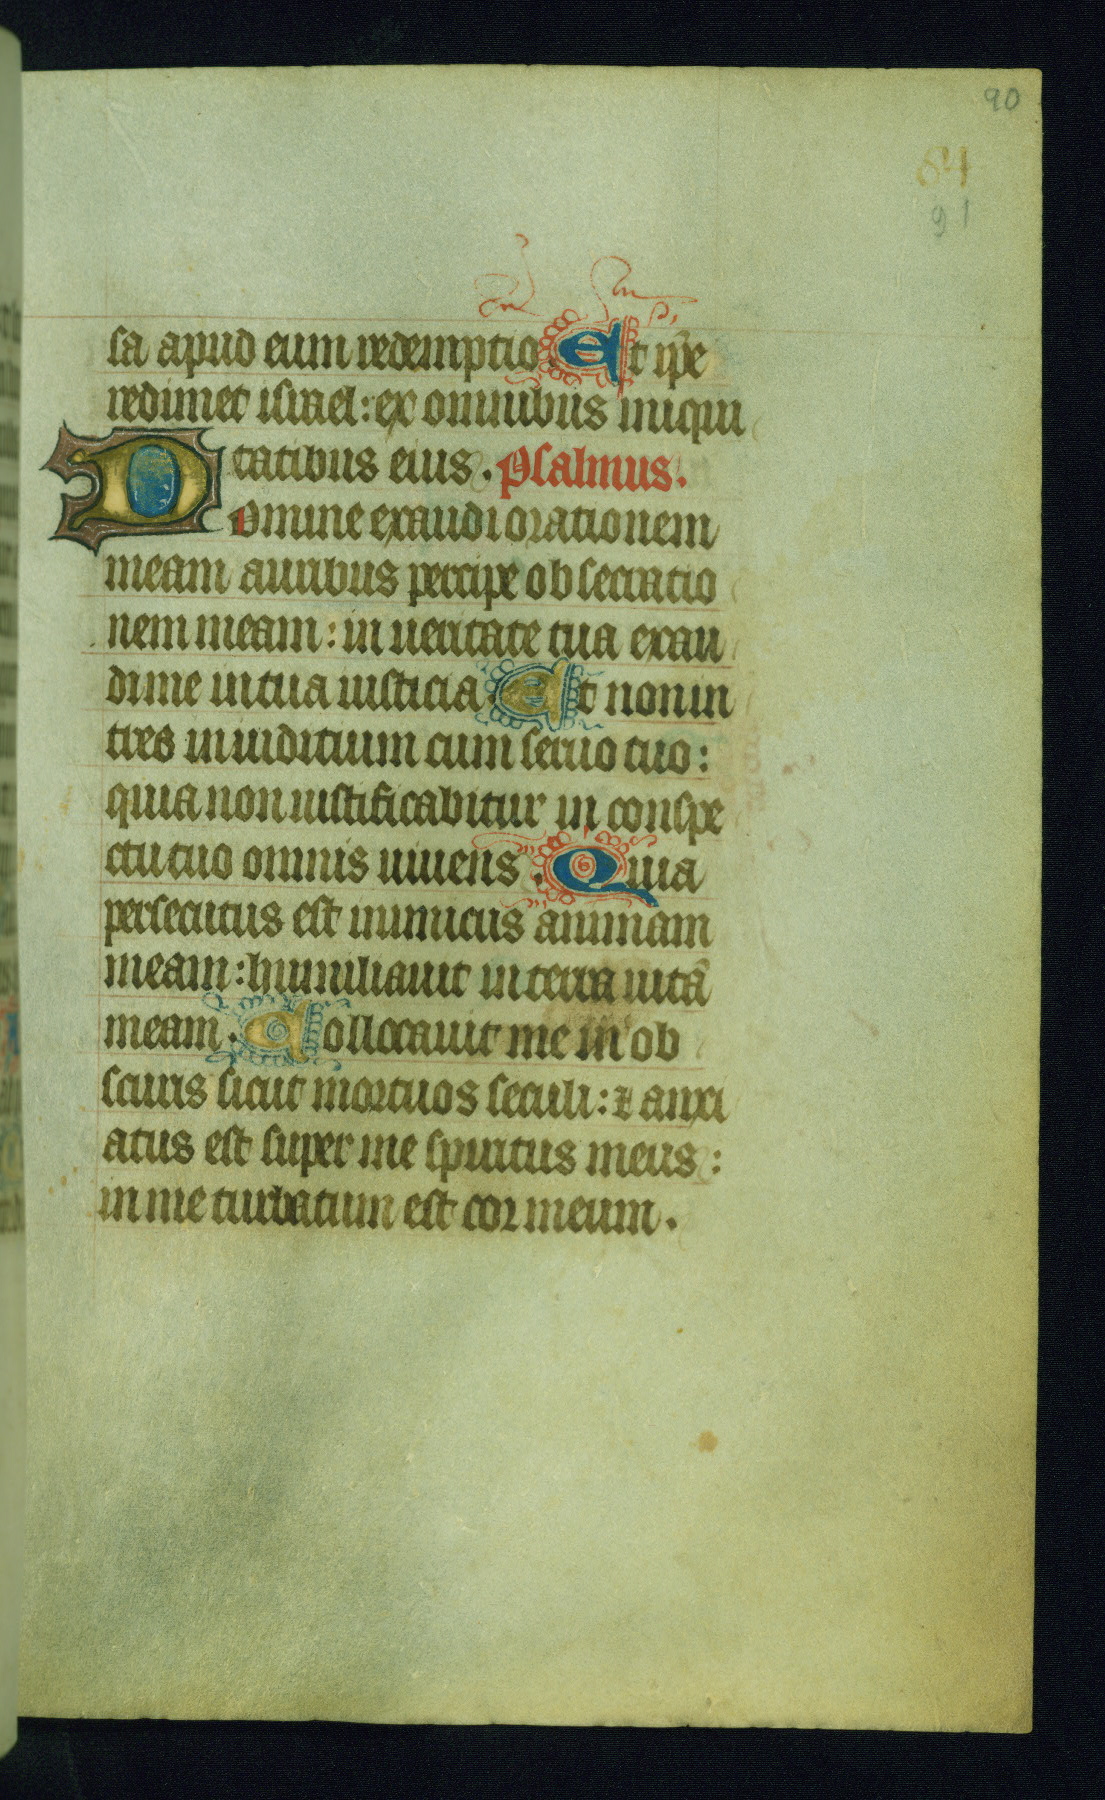 90
84
91
sa apud eum redemptio. Et ip̄e
redimet israel: ex omnibus iniqui
tatibus eius. Psalmus.
Domine exaudi orationem
meam auribus percipe obsecratio
nem meam: in ueritate tua exau
di me in tua iusticia. Et non in
tres in iuditium cum seruo tuo:
quia non iustificabitur in conspe
ctu tuo omnis uiuens. Quia
persecutus est inimicus animam
meam: humiliauit in terra uitā
meam. Collocauit me in ob
scuris sicut mortuos seculi: ⁊ anxi
atus est super me spiritus meus:
in me turbatum est cor meum.